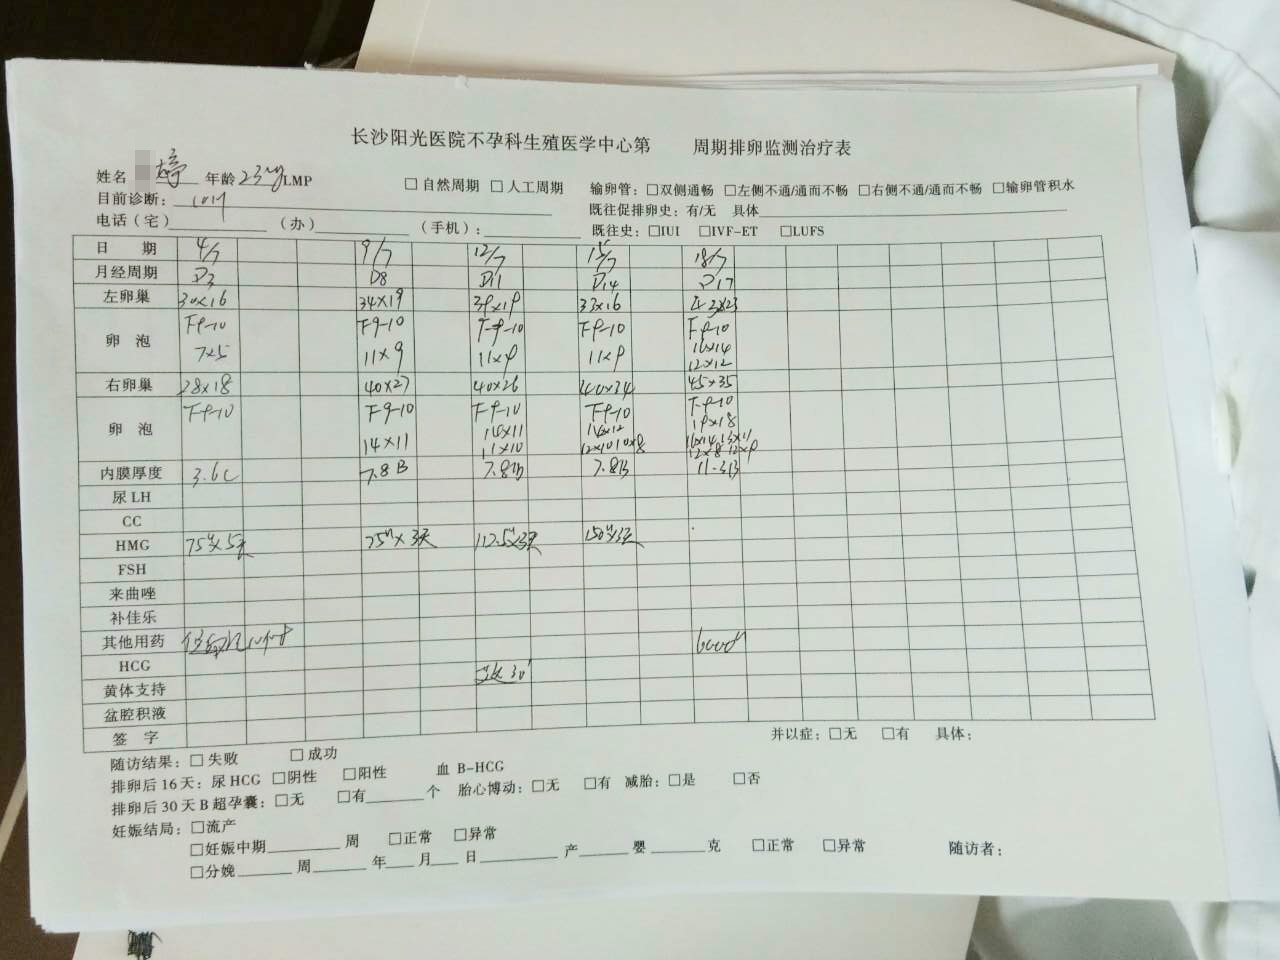 长沙阳光医院不孕科生殖医学中心第 周期排卵监测治疗表
姓名 婷 年龄 23 LMP □自然周期 □人工周期 输卵管：□双侧通畅 □左侧不通/通而不畅 □右侧不通/通而不畅 □输卵管积水
目前诊断： 既往促排卵史：有/无 具体
电话（宅） （办） （手机）： 既往史：□IUI □IVF-ET □LUFS
日 期 4/7 9/7 12/7 15/7 18/7
月经周期 D3 D8 D11 D14 D17
左卵巢 30×16 34×19 39×19 33×16
卵 泡 F9-10 F9-10 F-9-10 F9-10 F9-10
7×5 11×9 11×9 11×9 16×14
12×12
右卵巢 28×18 40×27 40×26 40×34 45×35
卵 泡 F9-10 F9-10 F9-10 F9-10 F-9-10
14×11 14×11 14×12 19×18
11×10 12×10 10×8 16×14 13×11
12×8 12×9
内膜厚度 3.6C 7.8B 7.8B 7.8B 11.3B
尿LH
CC
HMG 75u×5天 75u×3天 112.5u×3天 150u×3天
FSH
来曲唑
补佳乐
其他用药 6000u
HCG
黄体支持
盆腔积液
签 字
并以症：□无 □有 具体：
随访结果：□失败 □成功
排卵后16天：尿HCG □阴性 □阳性 血 B-HCG
排卵后30天B超孕囊：□无 □有 个 胎心博动：□无 □有 减胎：□是 □否
妊娠结局：□流产
□妊娠中期 周 □正常 □异常
□分娩 周 年 月 日 产 婴 克 □正常 □异常 随访者：